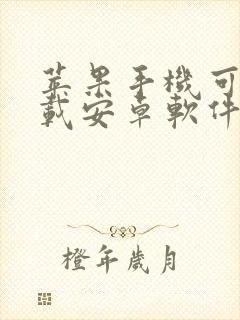 苹果手機可
載安卓軟件
橙年歲月